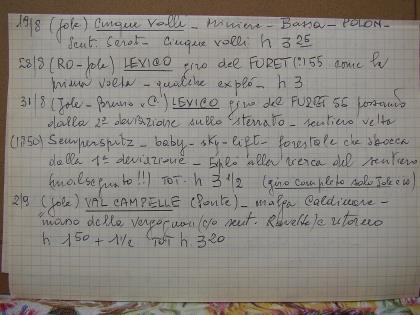 19/8 (Jole) Cinque Valli - Miniere - Bassa - POLON -
Sent. Serot - Cinque valli h 3 25
28/8 (RO - Jole) LEVICO giro del FURET(!) 55 come la
prima volta - qualche explò - h 3
31/8 (Jole - Bruno e C.) LEVICO giro del FURET 55 passando
dalla 2ª deviazione sullo sterrato - sentiero
(1350) - baby - sky-lift - forestale che sbocca
dalla 1ª deviazione - Explò alla ricerca del sentiero
(malsegnato!!) TOT. h 3 1/2 (giro completo solo Jole e io)
2/9 (Jole) VAL CAMPELLE (Ponte) - malga Caldenave -
della (c/o sent. ) e ritorno
h 1 50 + 1 1/2 TOT h. 3 20